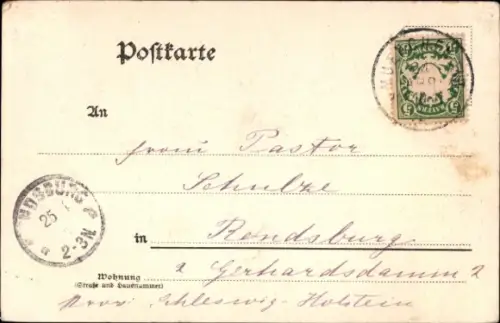 Postkarte
MÜNCHEN
BAYERN
An
Frau Pastor
Schulze
in Rendsburg
Gerhardsdamm 2
Wohnung
(Straße und Hausnummer)
Prov. Schleswig-Holstein
RENDSBURG
25
2-3N